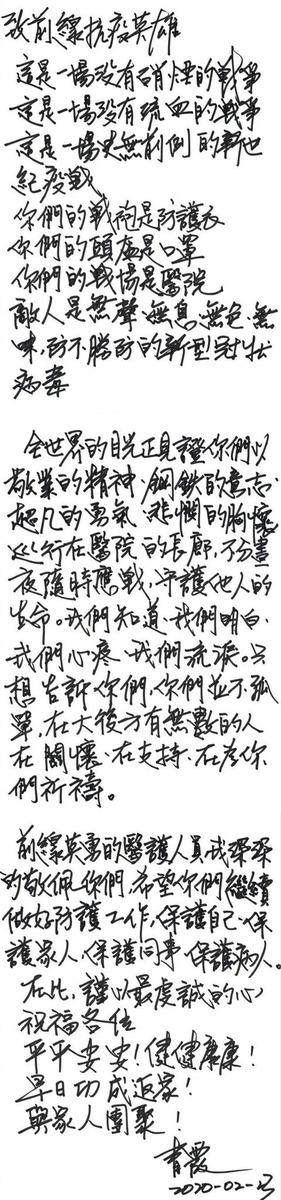 致前線抗疫英雄
這是一場沒有硝煙的戰爭
這是一場沒有流血的戰爭
這是一場史無前例的新世
紀疫戰
你們的戰袍是防護衣
你們的頭盔是口罩
你們的戰場是醫院
敵人是無聲、無息、無色、無
味，防不勝防的新型冠狀
病毒
全世界的目光正見證你們以
敬業的精神、鋼鐵的意志、
超凡的勇氣、悲憫的胸懷
巡行在醫院的長廊，不分晝
夜隨時應戰，守護他人的
生命。我們知道、我們明白、
我們心疼、我們流淚。只
想告訴你們，你們並不孤
單，在大後方有無數的人
在關懷、在支持、在為你
們祈禱。
前線英勇的醫護人員，我深深
的敬佩你們，希望你們繼續
做好防護工作，保護自己、保
護家人、保護同事、保護病人。
在此，謹以最虔誠的心
祝福各位
平平安安！健健康康！
早日功成返家！
與家人團聚！
青霞
2020-02-